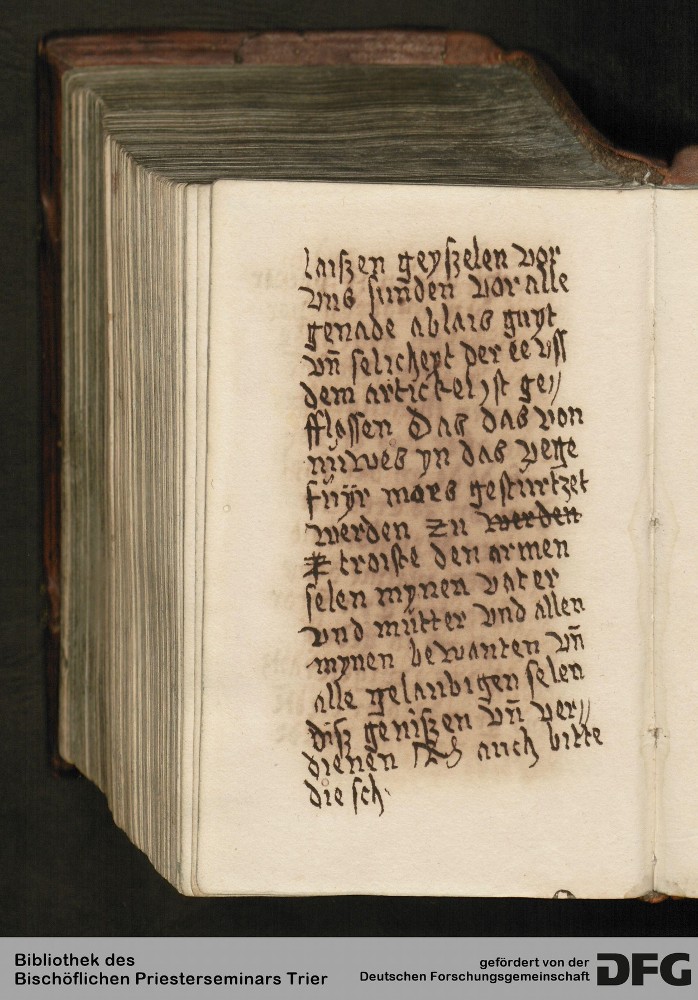 laiszen geyszelen vor
vns sunden vor alle
genade ablais guyt
vn̄ selicheyt der
dem artickel yst ge//
fflossen Das das von
yn das vege
fuÿr mors gesturtzet
werden zu werden
troiste den armen
selen mynen vater
vnd mutter vnd allen
mynen bewanten vn̄
alle gelaubigen selen
disz geniszen vn̄ ver//
dienen Ich auch bitte
die sch
Bibliothek des
Bischöflichen Priesterseminars Trier
gefördert von der
Deutschen Forschungsgemeinschaft
DFG